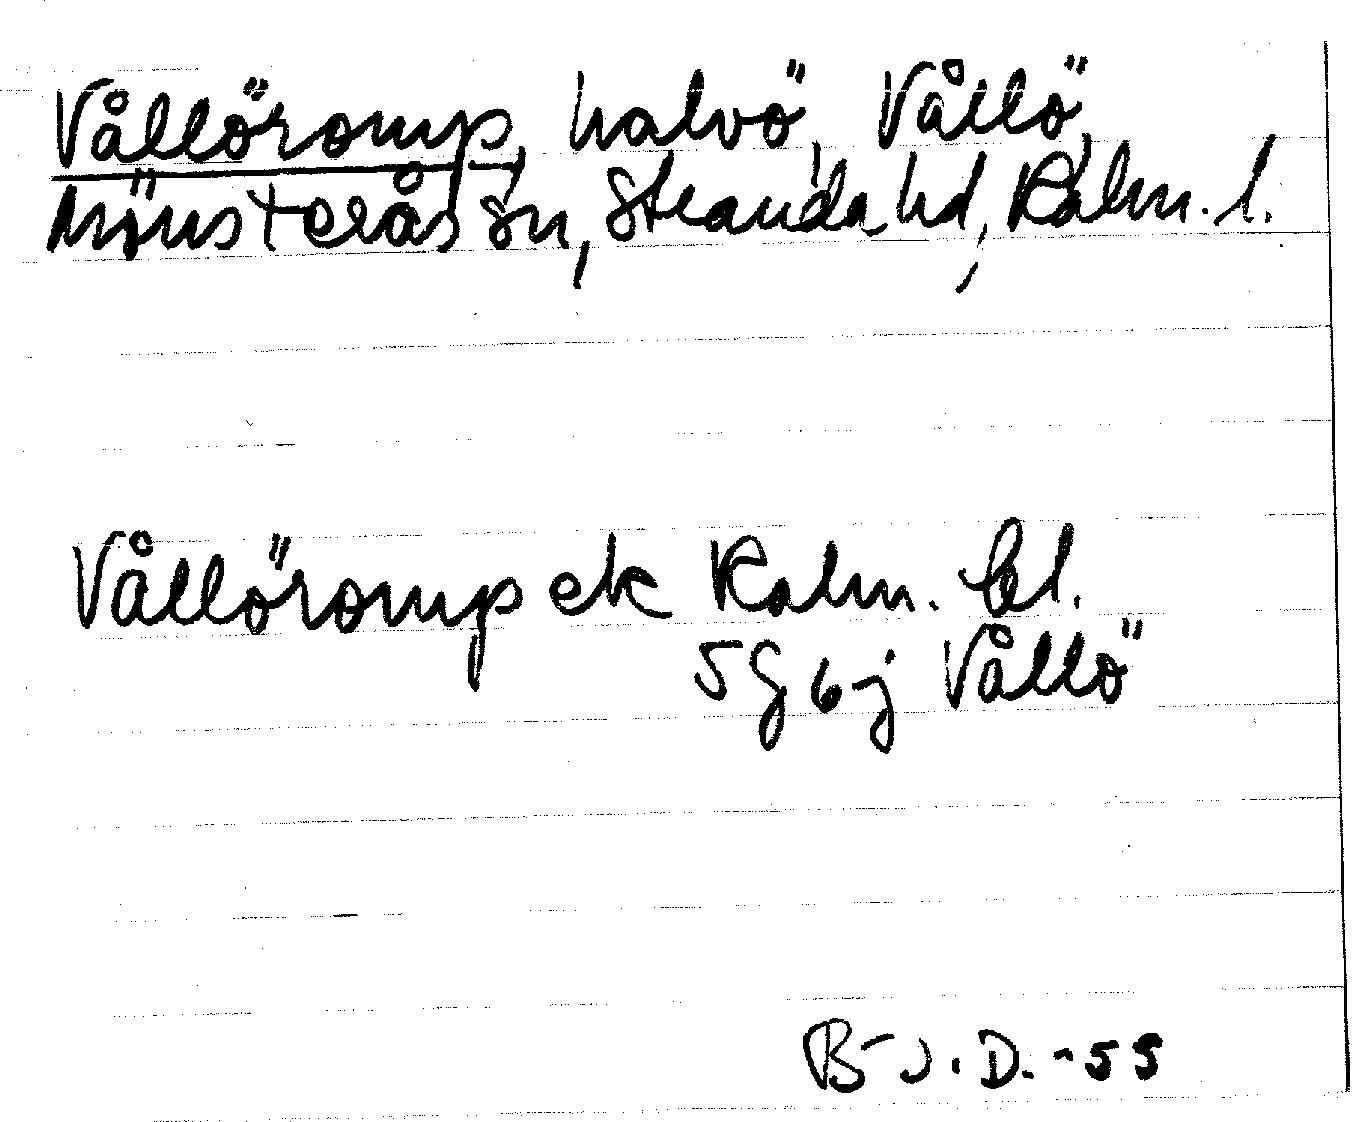 Vållöromp, halvö, Vållö,
Mönsterås sn, Stranda hd, Kalm. l.
Vållöromp ek Kalm. bl.
5 G 6 j Vållö
B-J. D. -55